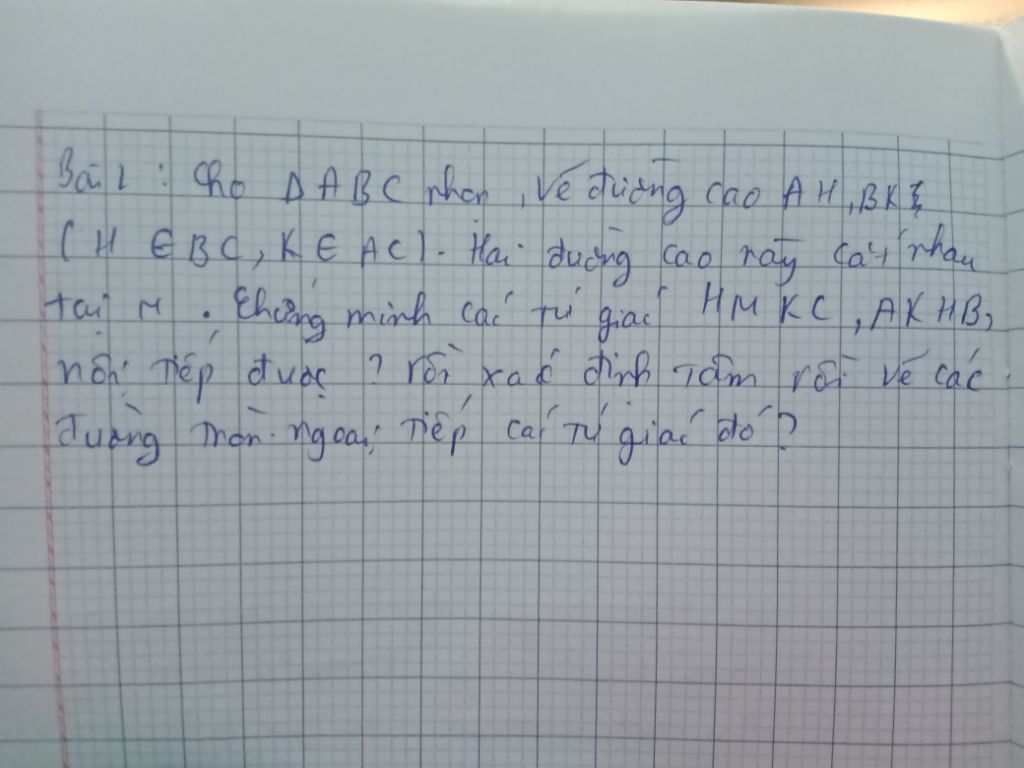 Bài 1 : Cho ΔABC nhọn , vẽ đường cao AH, BK
( H ∈ BC, K ∈ AC). Hai đường cao này cắt nhau
tại M . Chứng minh các tứ giác HMKC , AKHB,
nội tiếp được ? rồi xác định tâm rồi vẽ các
đường tròn ngoại tiếp các tứ giác đó ?